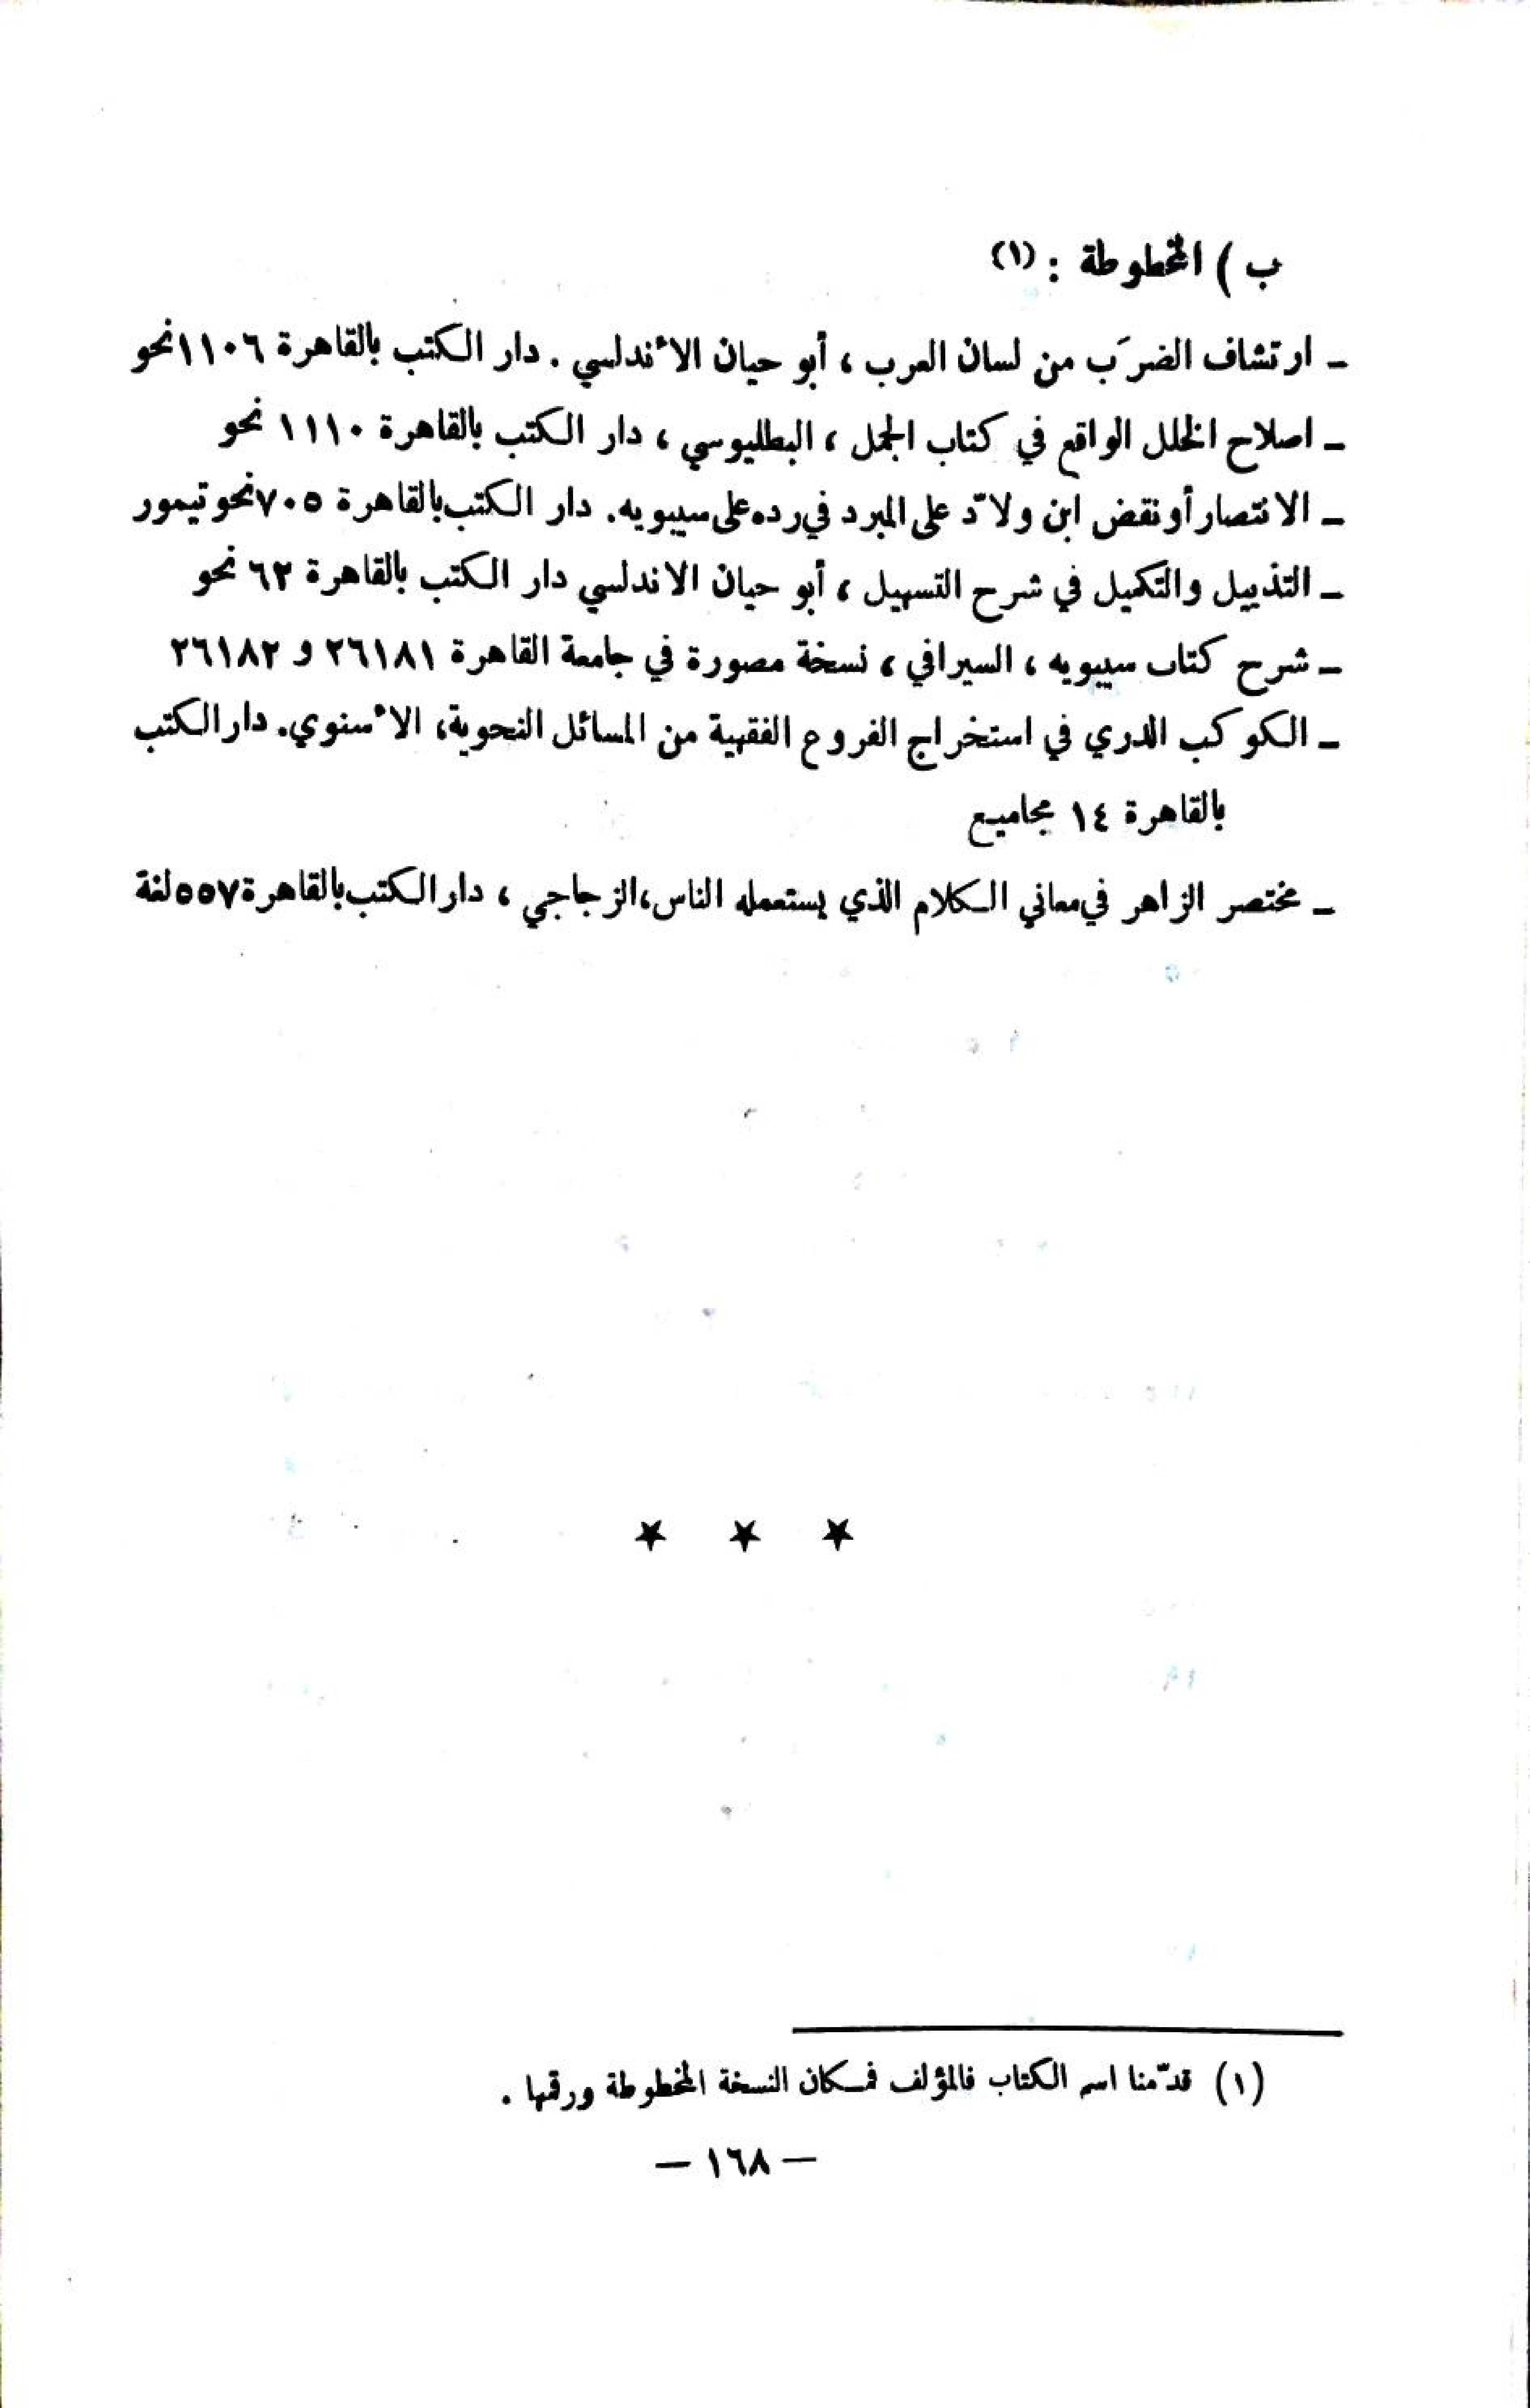 ب ) المخطوطة : (١)
ـ ارتشاف الضرَب من لسان العرب ، أبو حيان الأندلسي . دار الكتب بالقاهرة ١١٠٦ نحو
ـ اصلاح الخلل الواقع في كتاب الجمل ، البطليوسي ، دار الكتب بالقاهرة ١١١٠ نحو
ـ الانتصار أو نقض ابن ولاّد على المبرد في رده على سيبويه. دار الكتب بالقاهرة ٧٠٥ نحو تيمور
ـ التذييل والتكميل في شرح التسهيل ، أبو حيان الاندلسي دار الكتب بالقاهرة ٦٢ نحو
ـ شرح كتاب سيبويه ، السيرافي ، نسخة مصورة في جامعة القاهرة ٢٦١٨١ و ٢٦١٨٢
ـ الكوكب الدري في استخراج الفروع الفقهية من المسائل النحوية، الأسنوي. دار الكتب
بالقاهرة ١٤ مجاميع
ـ مختصر الزاهر في معاني الكلام الذي يستعمله الناس، الزجاجي ، دار الكتب بالقاهرة ٥٥٧ لغة
★ ★ ★
(١) قدّمنا اسم الكتاب فالمؤلف فمكان النسخة المخطوطة ورقمها .
— ١٦٨ —